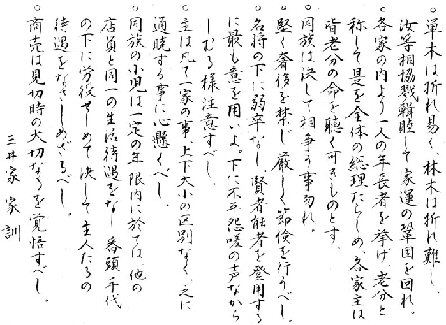 ○単木は折れ易く、林木は折れ難し。
汝等相協戮輯睦して家運の鞏固を図れ。
○各家の内より一人の年長者を挙げ、老分と
称して是を全体の総理たらしめ、各家主は
皆老分の命を聴く可きものとす。
○同族は決して相争う事勿れ。
○堅く奢侈を禁じ、厳しく節倹を行うべし。
○名将の下に弱卒なし、賢者能者を登用する
に最も意を用いよ。下に不平怨嗟の声なから
しむる様注意すべし。
○主は凡て一家の事、上下大小の区別なく、之に
通暁する事に心懸くべし。
○同族の小児は一定の年限内に於ては、他の
店員と同一の生活待遇をなし、番頭、手代
の下に労役せしめて、決して主人たるの
待遇をなさしめざるべし。
○商売は見切時の大切なるを覚悟すべし。
三井家家訓